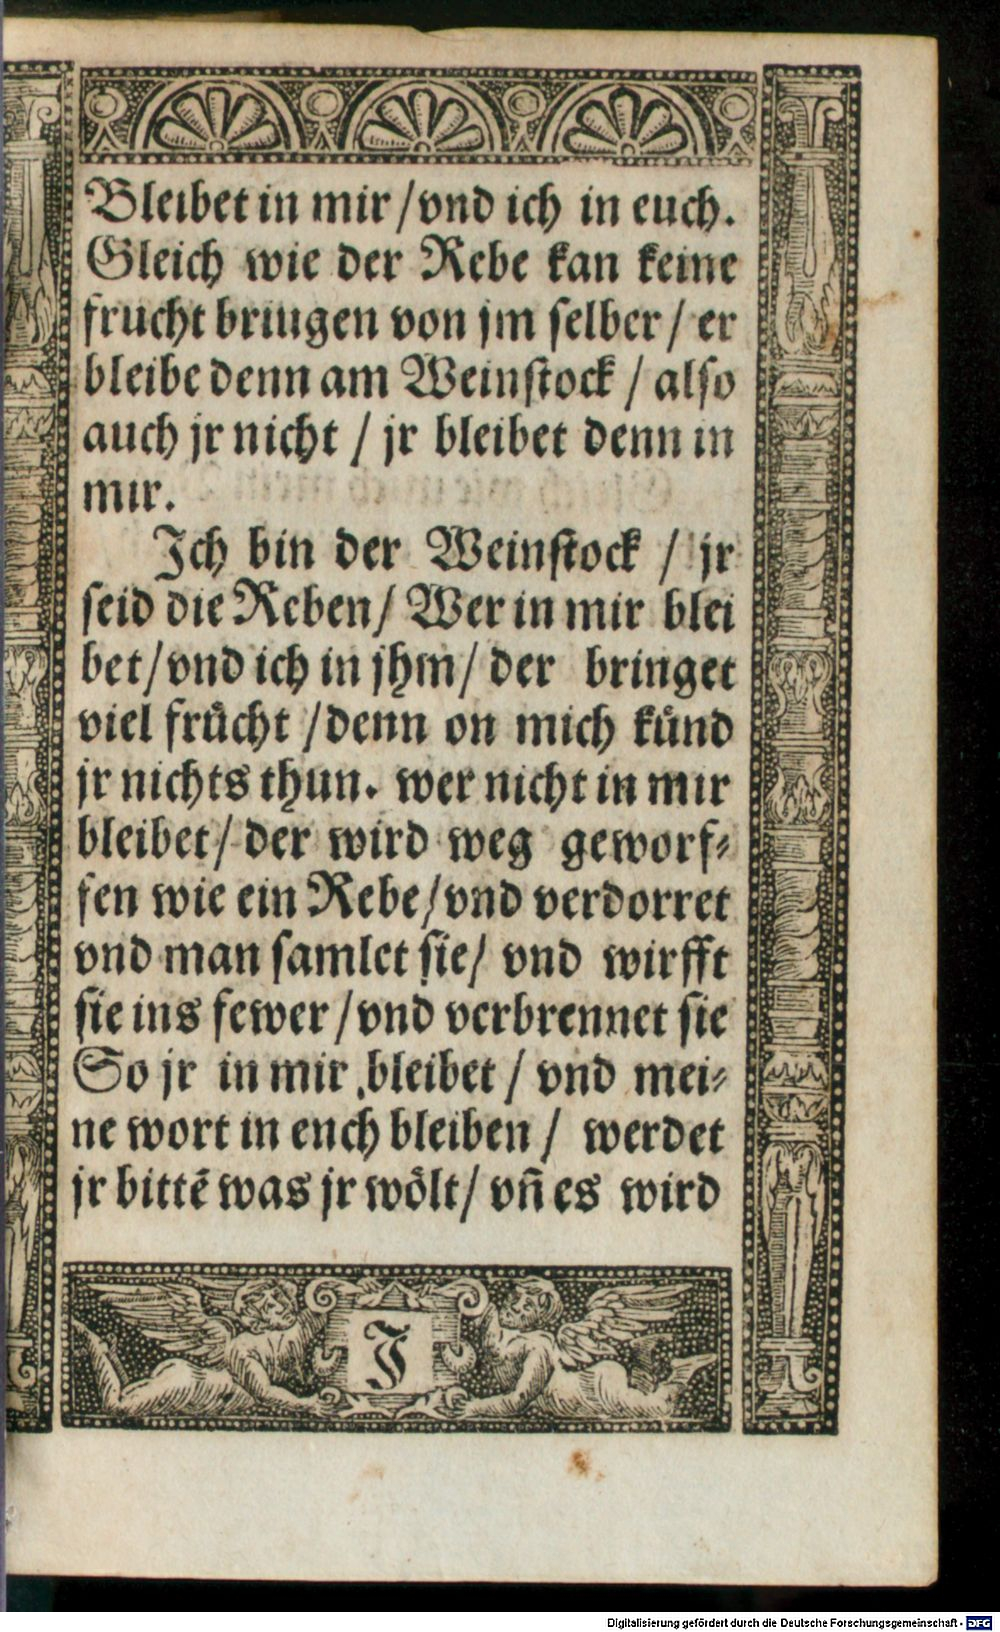 Bleibet in mir / vnd ich in euch.
Gleich wie der Rebe kan keine
frucht bringen von jm selber / er
bleibe denn am Weinstock / also
auch jr nicht / jr bleibet denn in
mir.
Ich bin der Weinstock / jr
seid die Reben / Wer in mir blei
bet / vnd ich in jhm / der bringet
viel frücht / denn on mich künd
jr nichts thun. wer nicht in mir
bleibet / der wird weg geworf⸗
fen wie ein Rebe / vnd verdorret
vnd man samlet sie / vnd wirfft
sie ins fewer / vnd verbrennet sie
So jr in mir bleibet / vnd mei⸗
ne wort in ench bleiben / werdet
jr bittẽ was jr wölt / vñ es wird
J
Digitalisierung gefördert durch die Deutsche Forschungsgemeinschaft - DFG